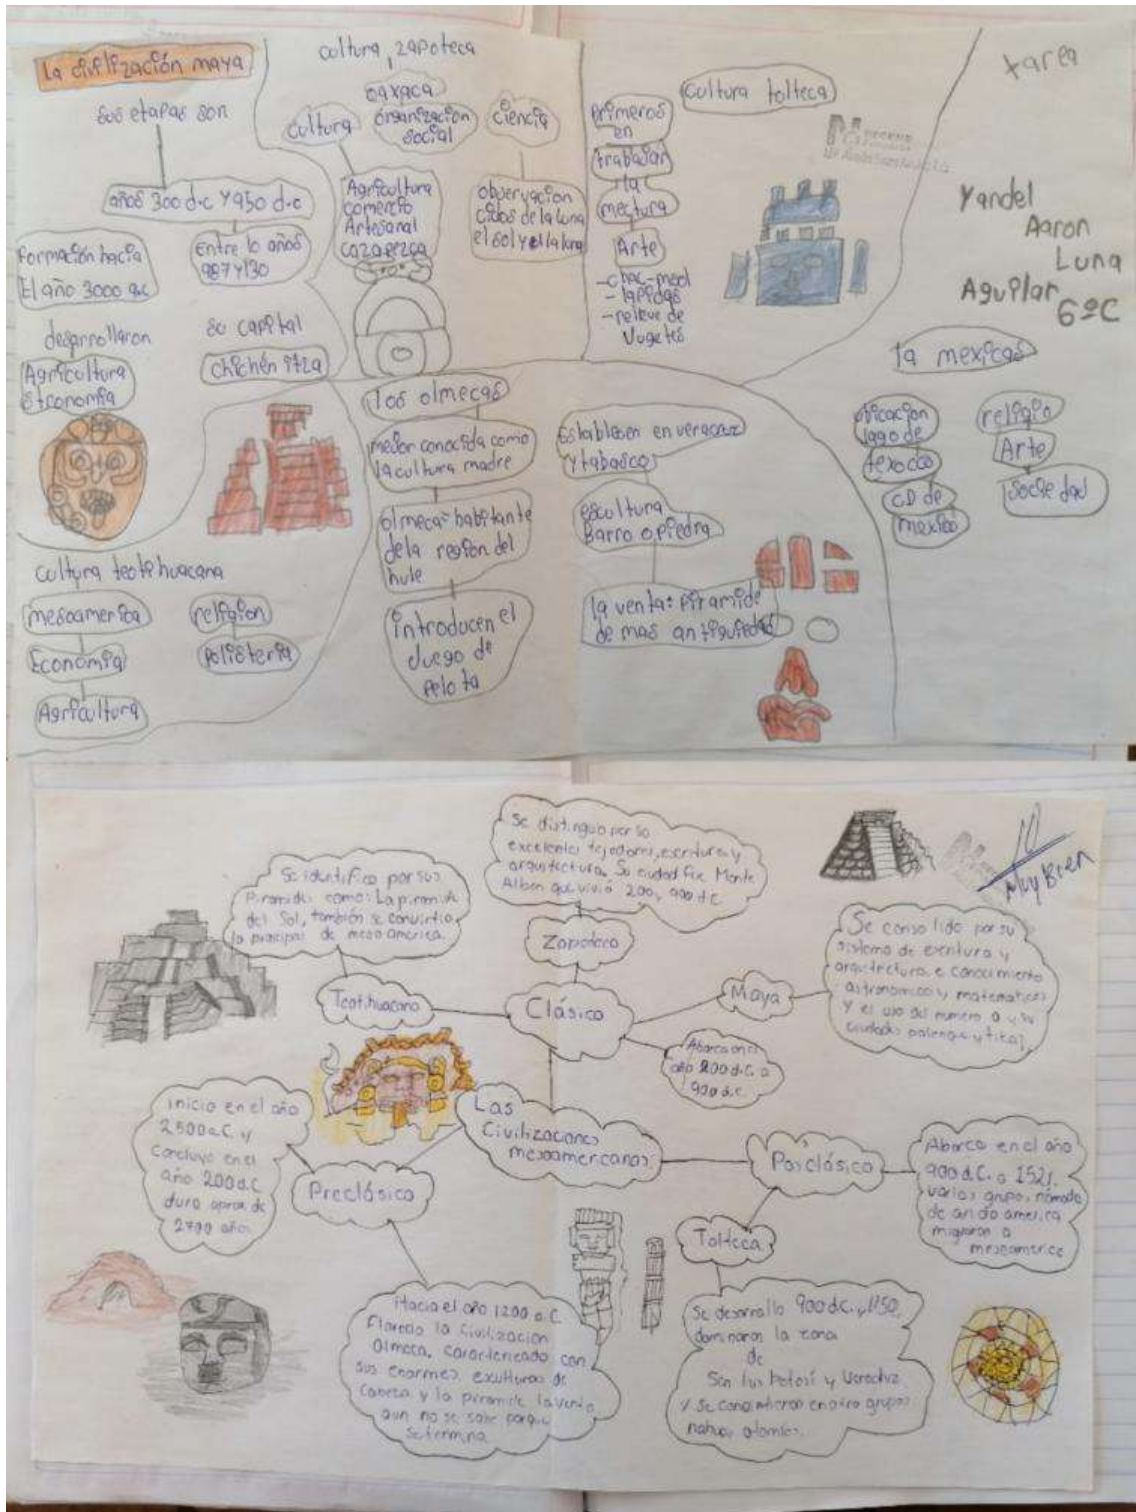 La civilización maya
sus etapas son
años 300 d.c y 950 d.c
Formación hacia
El año 3000 a.c
Entre lo años
987 y 130
desarrollaron
Agricultura
stronomia
su capital
chichén itza
cultura, zapoteca
oaxaca
cultura
organización
social
ciencia
Agricultura
comercio
Artesanal
caza pezca
observacion
ciclos de la luna
el sol y
cultura tolteca
primeros
en
trabajar
la
mectura
Arte
- chac-mool
- lapidas
- releve de
tarea
Yandel
Aaron
Luna
Aguilar
6ºC
la mexicas
obicacion
lago de
texococo
CD de
mexico
religio
Arte
Sociedad
los olmecas
mejor conocida como
la cultura madre
olmeca=habitante
de la region del
hule
introducen el
juego de
pelota
Establesen en veracruz
y tabasco
escultura
Barro o piedra
la venta: piramide
de mas antiguedad
cultura teotihuacana
mesoamerica
Economia
Agricultura
religion
Polisteria
Se distinguo por su
excelentes tejedores, escritura y
arquitectura. Su ciudad fue Monte
Alban que vivió 200 y 900 d.C
Zapoteco
Se identifico por sus
Piramides como: La piramide
del Sol, también se convirtio
la principal de mesoamerica.
Teotihuacano
Clásico
Maya
Se consolido por su
sistema de escritura y
arquitectura e conocimiento
astronomicos y matematicos
y el uso del numero 0 y su
ciudades palenque y tikal
Abarca en el
año 200 d.C. a
900 d.C.
10
Muy Bien
Las
Civilizaciones
mesoamericanas
inicio en el año
2500 a.C. y
concluyo en el
año 200 d.C
duro aprox de
2700 años
Preclásico
Posclásico
Abarca en el año
900 d.C. a 1521.
varios grupos nómada
de ando america
migraron a
mesoamerica
Tolteca
Hacia el año 1200 a.C.
Florecio la civilizacion
Olmeca, caracterizado con
sus enormes exculturas de
Cabeza y la piramide la venta
aun no se sabe porque
se termina
Se desarrollo 900 d.C. y 1150,
dominaron la zona
de
San luis Potosí y Veracruz
y se
nahuas otomies.